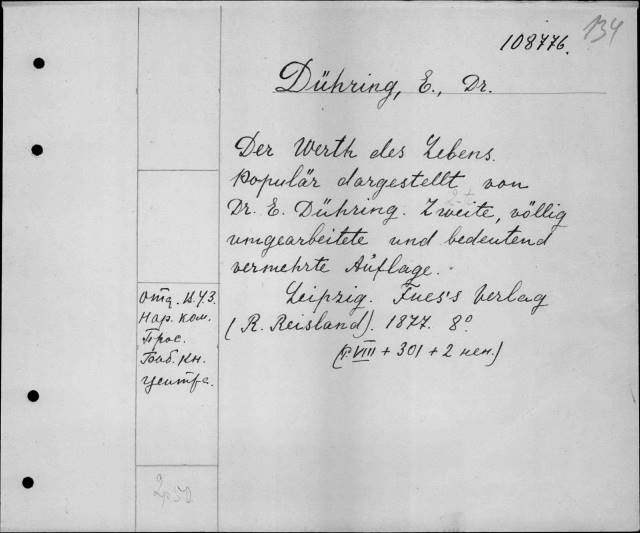 108776.
134
Dühring, E., Dr.
Der Werth des Lebens.
Populär dargestellt von
Dr. E. Dühring. Zweite, völlig
umgearbeitete und bedeutend
vermehrte Auflage.
Leipzig. Fues's Verlag
(R. Reisland). 1877. 8°
(VIII + 301 + 2 нен.)
Отд. И.У.З.
Нар. ком.
Прос.
Баб. кн.
центра.
2p50